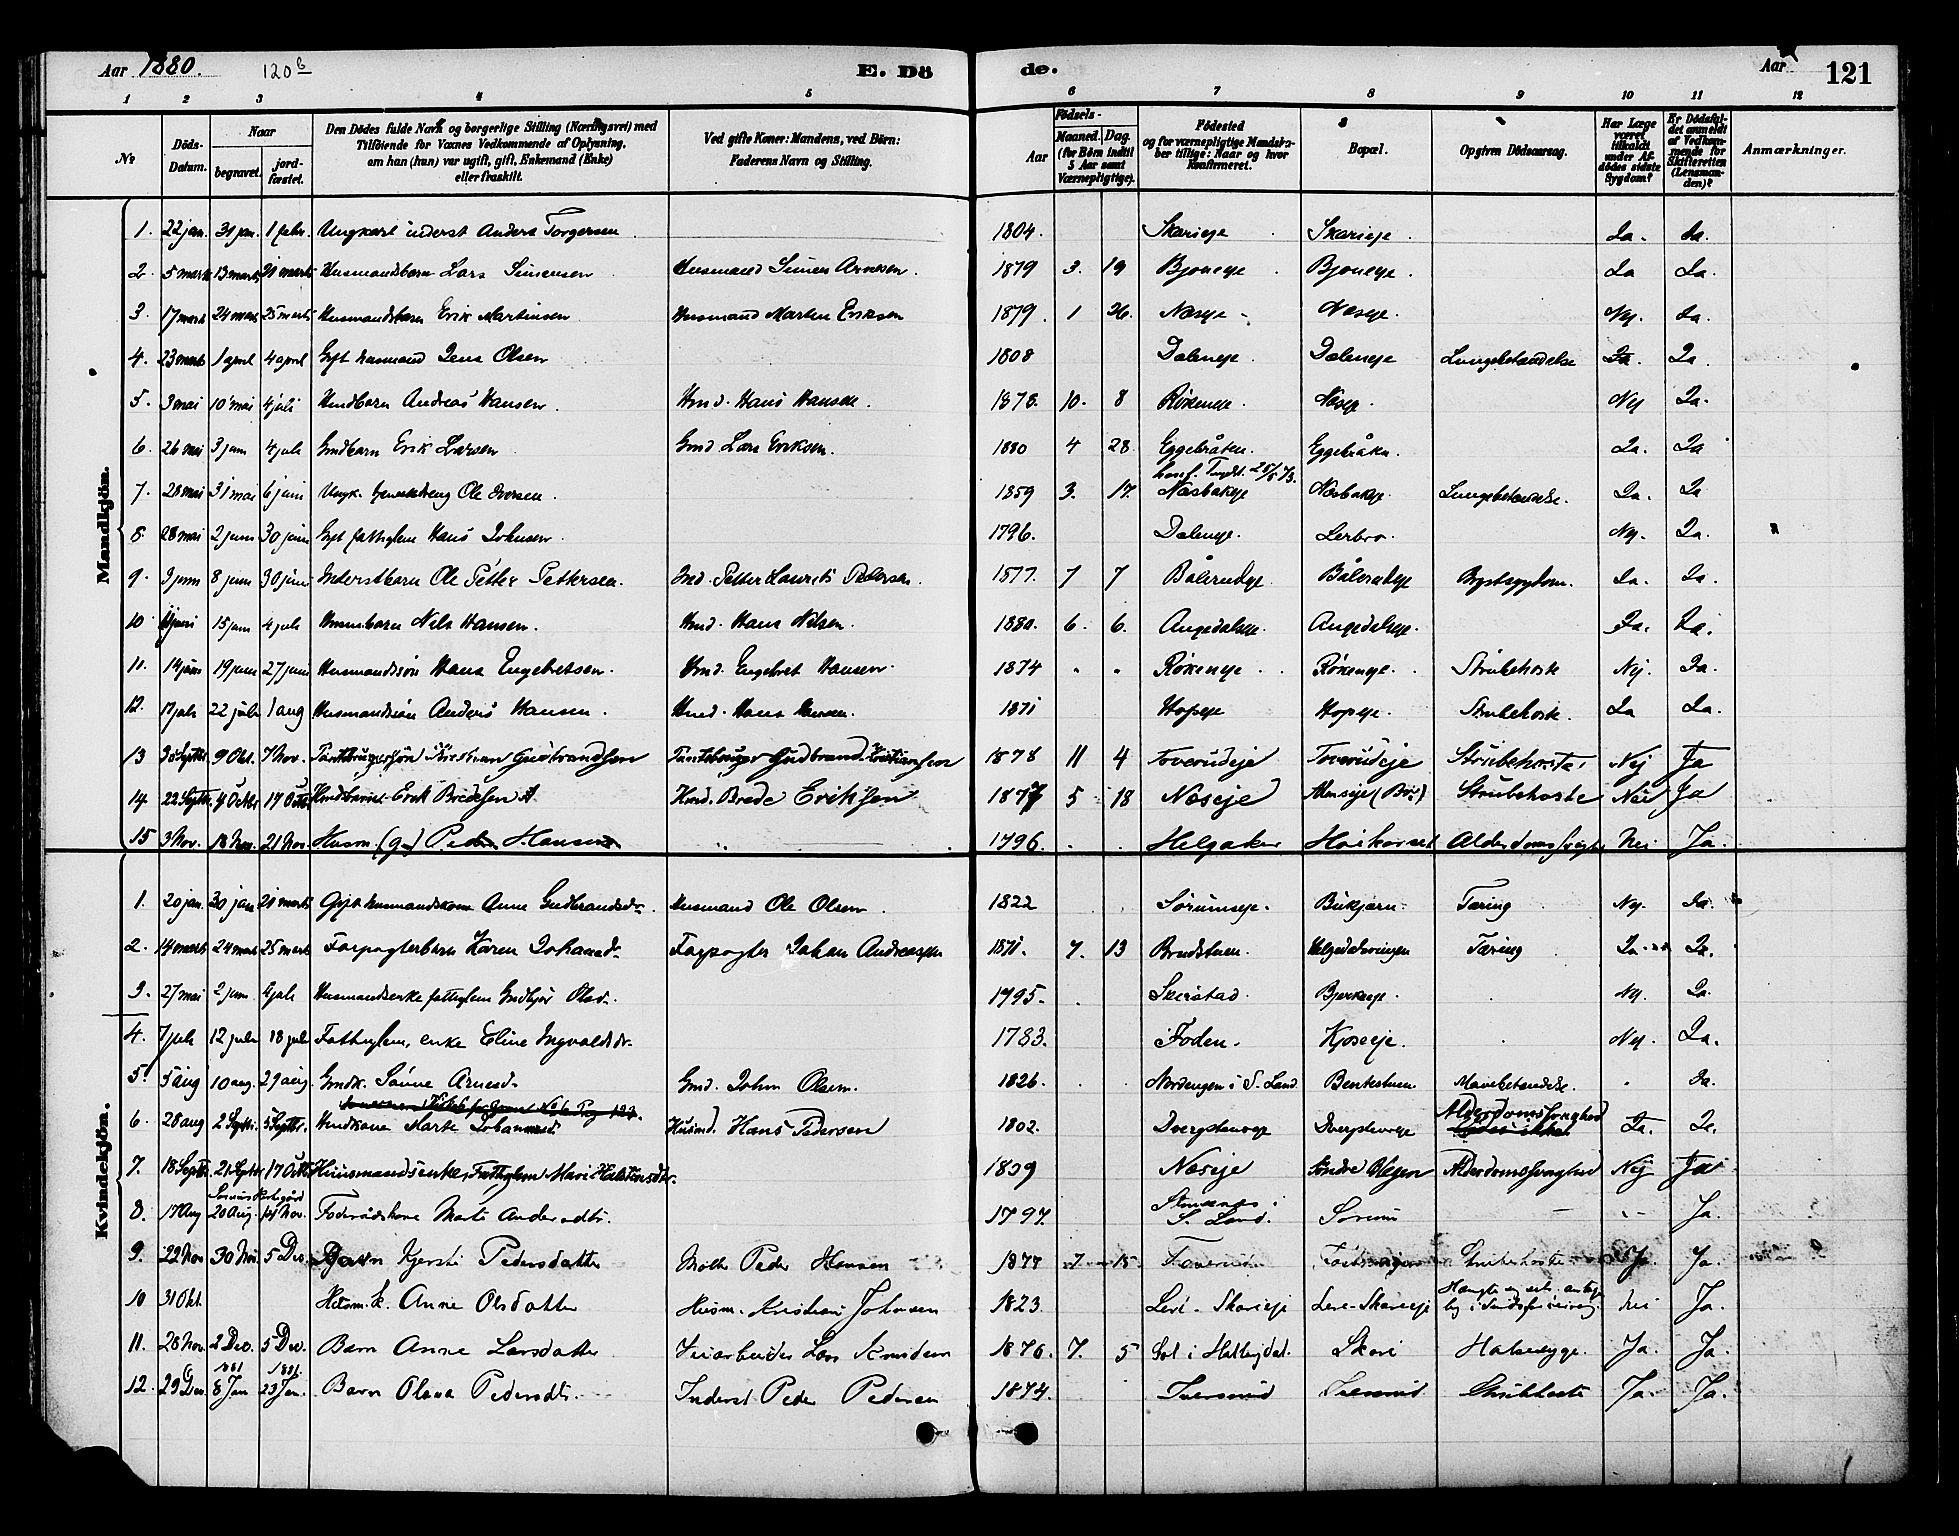 Aar 1880. 120b E. Dö de. Aar 121
1 2 3 4 5 6 7 8 9 10 11 12
No Döds-Datum. Naar begravet. jordfæstet. Den Dödes fulde Navn og borgerlige Stilling (Næringsvei) med Tilföiende for Voxnes Vedkommende af Oplysning, om han (hun) var ugift, gift, Enkemand (Enke) eller fraskilt. Ved gifte Koner: Mandens, ved Börn: Faderens Navn og Stilling. Aar Födsels- Maaned. Dag. (for Börn indtil 5 Aar samt Værnepligtige). Födested og for værnepligtige Mandskaber tillige: Naar og hvor Konfirmeret. Bopæl. Opgiven Dödsaarsag. Har Læge været tilkaldt under Afdödes sidste Sygdom? Er Dödsfaldet anmeldt af Vedkommende for Skifteretten (Lensmanden)? Anmærkninger.
Mandkjön.
1. 22 jan. 31 jan. 1 febr. Ungkarl inderst Anders Torgersen 1804. Skarieje Skarieje. Ja. Ja.
2. 5 marts 13 marts 21 marts Husmandsbarn Lars Simensen Husmand Simen Arnesen. 1879 3. 19 Bjoneye Bjoneye. Ja Ja.
3. 17 marts 24 marts 25 marts Husmandsbarn Erik Martinsen Husmand Martin Eriksen 1879. 1 26. Næseje Næseje. Nej. Ja.
4. 23 marts 1 april 4 april Gift husmand Jens Olsen 1808 Daleneje. Daleneje Lungebetændelse Ja Ja
5. 3 mai 10 mai 4 juli Hmdbarn Andreas Hansen. Hmd. Hans Hansen. 1878. 10. 8 Rökeneje. Næseje. Nej Ja.
6. 26 mai 3 juni 4 juli Gmdbarn Erik Larsen Gmd Lars Eriksen. 1880 4 28 Eggebråten. Eggebråten. Ja. Ja
7. 28 mai 31 mai 6 juni Ungk. Ole Iversen. 1859 3. 17. Næsbakeje Næsbakeje. Lungebetændelse. Ja. Ja
8. 28 mai 2 juni 30 juni Gift fattiglem Hans Johnsen. 1796. Daleneje. Lerbro. Nej. Ja.
9. 3 juni 8 juni 30 juni Inderstbarn Ole Petter Pettersen. Ind. Petter Laurits Pedersen. 1877. 7 7 Bålerudeje Bålerudeje Brystsygdom. Ja. Ja.
10. juni 15 juni 4 juli Hmdbarn Nils Hansen. Hmd. Hans Nilsen. 1880. 6. 6. Augedalseje. Augedalseje. Ja. Ja.
11. 14 juni 19 juni 27 juni Husmandssön Hans Engebretsen. Hmd. Engebret Hansen. 1874 " " Rökeneje Rökeneje. Strubehoste Nej. Ja.
12. 17 juli 22 juli 1 aug Husmandssön Anders Hansen. Hmd. Hans Hansen. 1871 Hopseje Hopseje. Strubehoste. Ja Ja.
13 30 Septbr. 9 Okt. 7 Nov. Kristian Gudbrandsen Gudbrand Kristiansen 1878 11 4 Toverudeje Toverudeje Strubehoste. Nej Ja
14 22 Septbr. 4 Octbr 17 Octbr Hmdbarnet Erik Bredesen Hmd. Brede Eriksen 1877 5 18 Næseje Strubehoste Nei Ja
15 3 Nov. 18 Nov. 21 Nov. Husm. (g.) Peder Hansen " 1796. . . Helgaker Haikornet Alderdomssvaghed Nei Ja.
Kvindekjön.
1. 20 jan. 30 jan 21 marts Gift husmandskone Anne Gudbrandsdr. Husmand Ole Olsen. 1822 Sörumseje. Bukjærn. Tæring Nej. Ja.
2. 14 marts 24 marts 25 marts Forpagterbarn Karen Johansd. Forpagter Johan Andreassen 1871. 7. 13 Brudstuen. Tæring Ja Ja.
3. 27 mai 2 juni 4 juli Husmandsenke fattiglem Gudbjör Olsd. 1795. Skiörstad. Bjerkeeje. Nej. Ja.
4. 7 juli 12 juli 18 juli Fattiglem, enke Eline Ingvaldsdr. 1783. Foden. Kjoseeje. Nej. Ja.
5. 5 aug 10 aug. 29 aug. Gmdk. Sönne Arnesd. Gmd. John Olsen. 1826. Nordengen i S. Land Bentestuen Mavebetændelse. " Ja.
6. 28 aug 2 Septbr. 5 Septbr. Hmdkone Marte Johannesd. Husmd. Hans Pedersen 1802. Dvergsteneje Dvergsteneje Alderdomssvaghed Ja. Ja.
7. 18 Septbr 21 Septbr 17 Octbr Husmandsenke, Fattiglem Mari Halstensdtr. 1809 Næseje Söndre Vegen Alderdomssvaghed Nej Ja
8. 17 Aug 20 Aug. Nov. Föderådskone Marte Andersdtr. 1797. i S. Land. Sörum Ja.
9. 22 Nov 30 Nov. 5 Dec. Barn Kjersti Pedersdatter Peder Hansen 1877 7 15 Toverud Strubehoste Ja. Ja.
10 31 Okt. Husm. k. Anne Olsdatter Husm. Kristian Johnsen 1823 Lere-Skarieje Lere-Skarieje Hængte sig selv i Sindsforvirring. Nei Ja.
11. 28 Nov. 2 Dec. 5 Dec. Barn Anne Larsdatter Veiarbeider Lars Knudsen 1876. 7. 5 Gol i Hallingdal. Skari Halssyge. Ja. Ja.
12. 29 Dec. 1881 8 Jan 1881. 23 Jan. Barn Olava Pedersdtr. Inderst Peder Pedersen 1874. Tversrud Tversrud Strubehoste Ja. Ja.